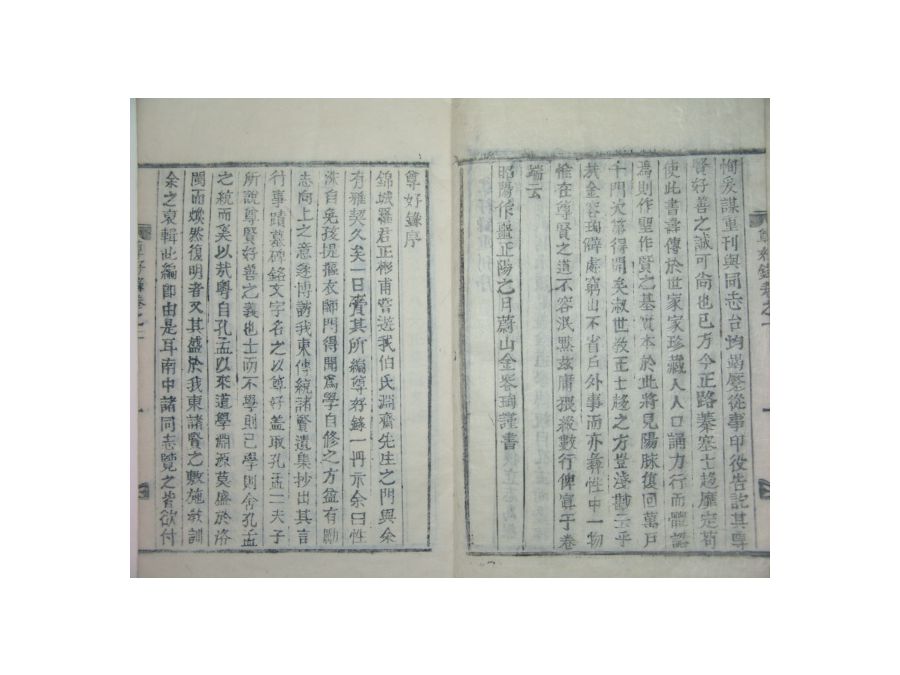 恂爰謀重刊與同志台均竭蹷從事印役告訖其尊
賢好善之誠可尙也已方今正路蓁塞士趨靡定苟
使此書壽傳於世家家珍藏人人口誦力行而體認
爲則作聖作賢之基實本於此將見陽脉復回萬戶
千門次第得開矣叔世敎正士趨之方豈淺尠云乎
哉金容珣僻處窮山不省戶外事而亦彝性中一物
惟在尊賢之道不容泯默玆庸猥綴數行俾寘于卷
端云
昭陽作噩正陽之月蔚山金容珣謹書
尊好錄序
錦城羅君正彬甫嘗遊我伯氏淵齋先生之門與余
有雅契久矣一日賫其所編尊好錄一冊示余曰性
洙自免孩提摳衣師門得聞爲學自修之方益有勵
志向上之意遂博訪我東傳統諸賢遺集抄出其言
行事蹟墓碑銘文字名之以尊好蓋取孔孟二夫子
所說尊賢好善之義也士而不學則已學則舍孔孟
之統而奚以哉粤自孔孟以來道學淵源莫盛於洛
閩而煥然復明者又其盛於我東諸賢之敷施敎訓
余之裒輯此編卽由是耳南中諸同志覽之皆欲付